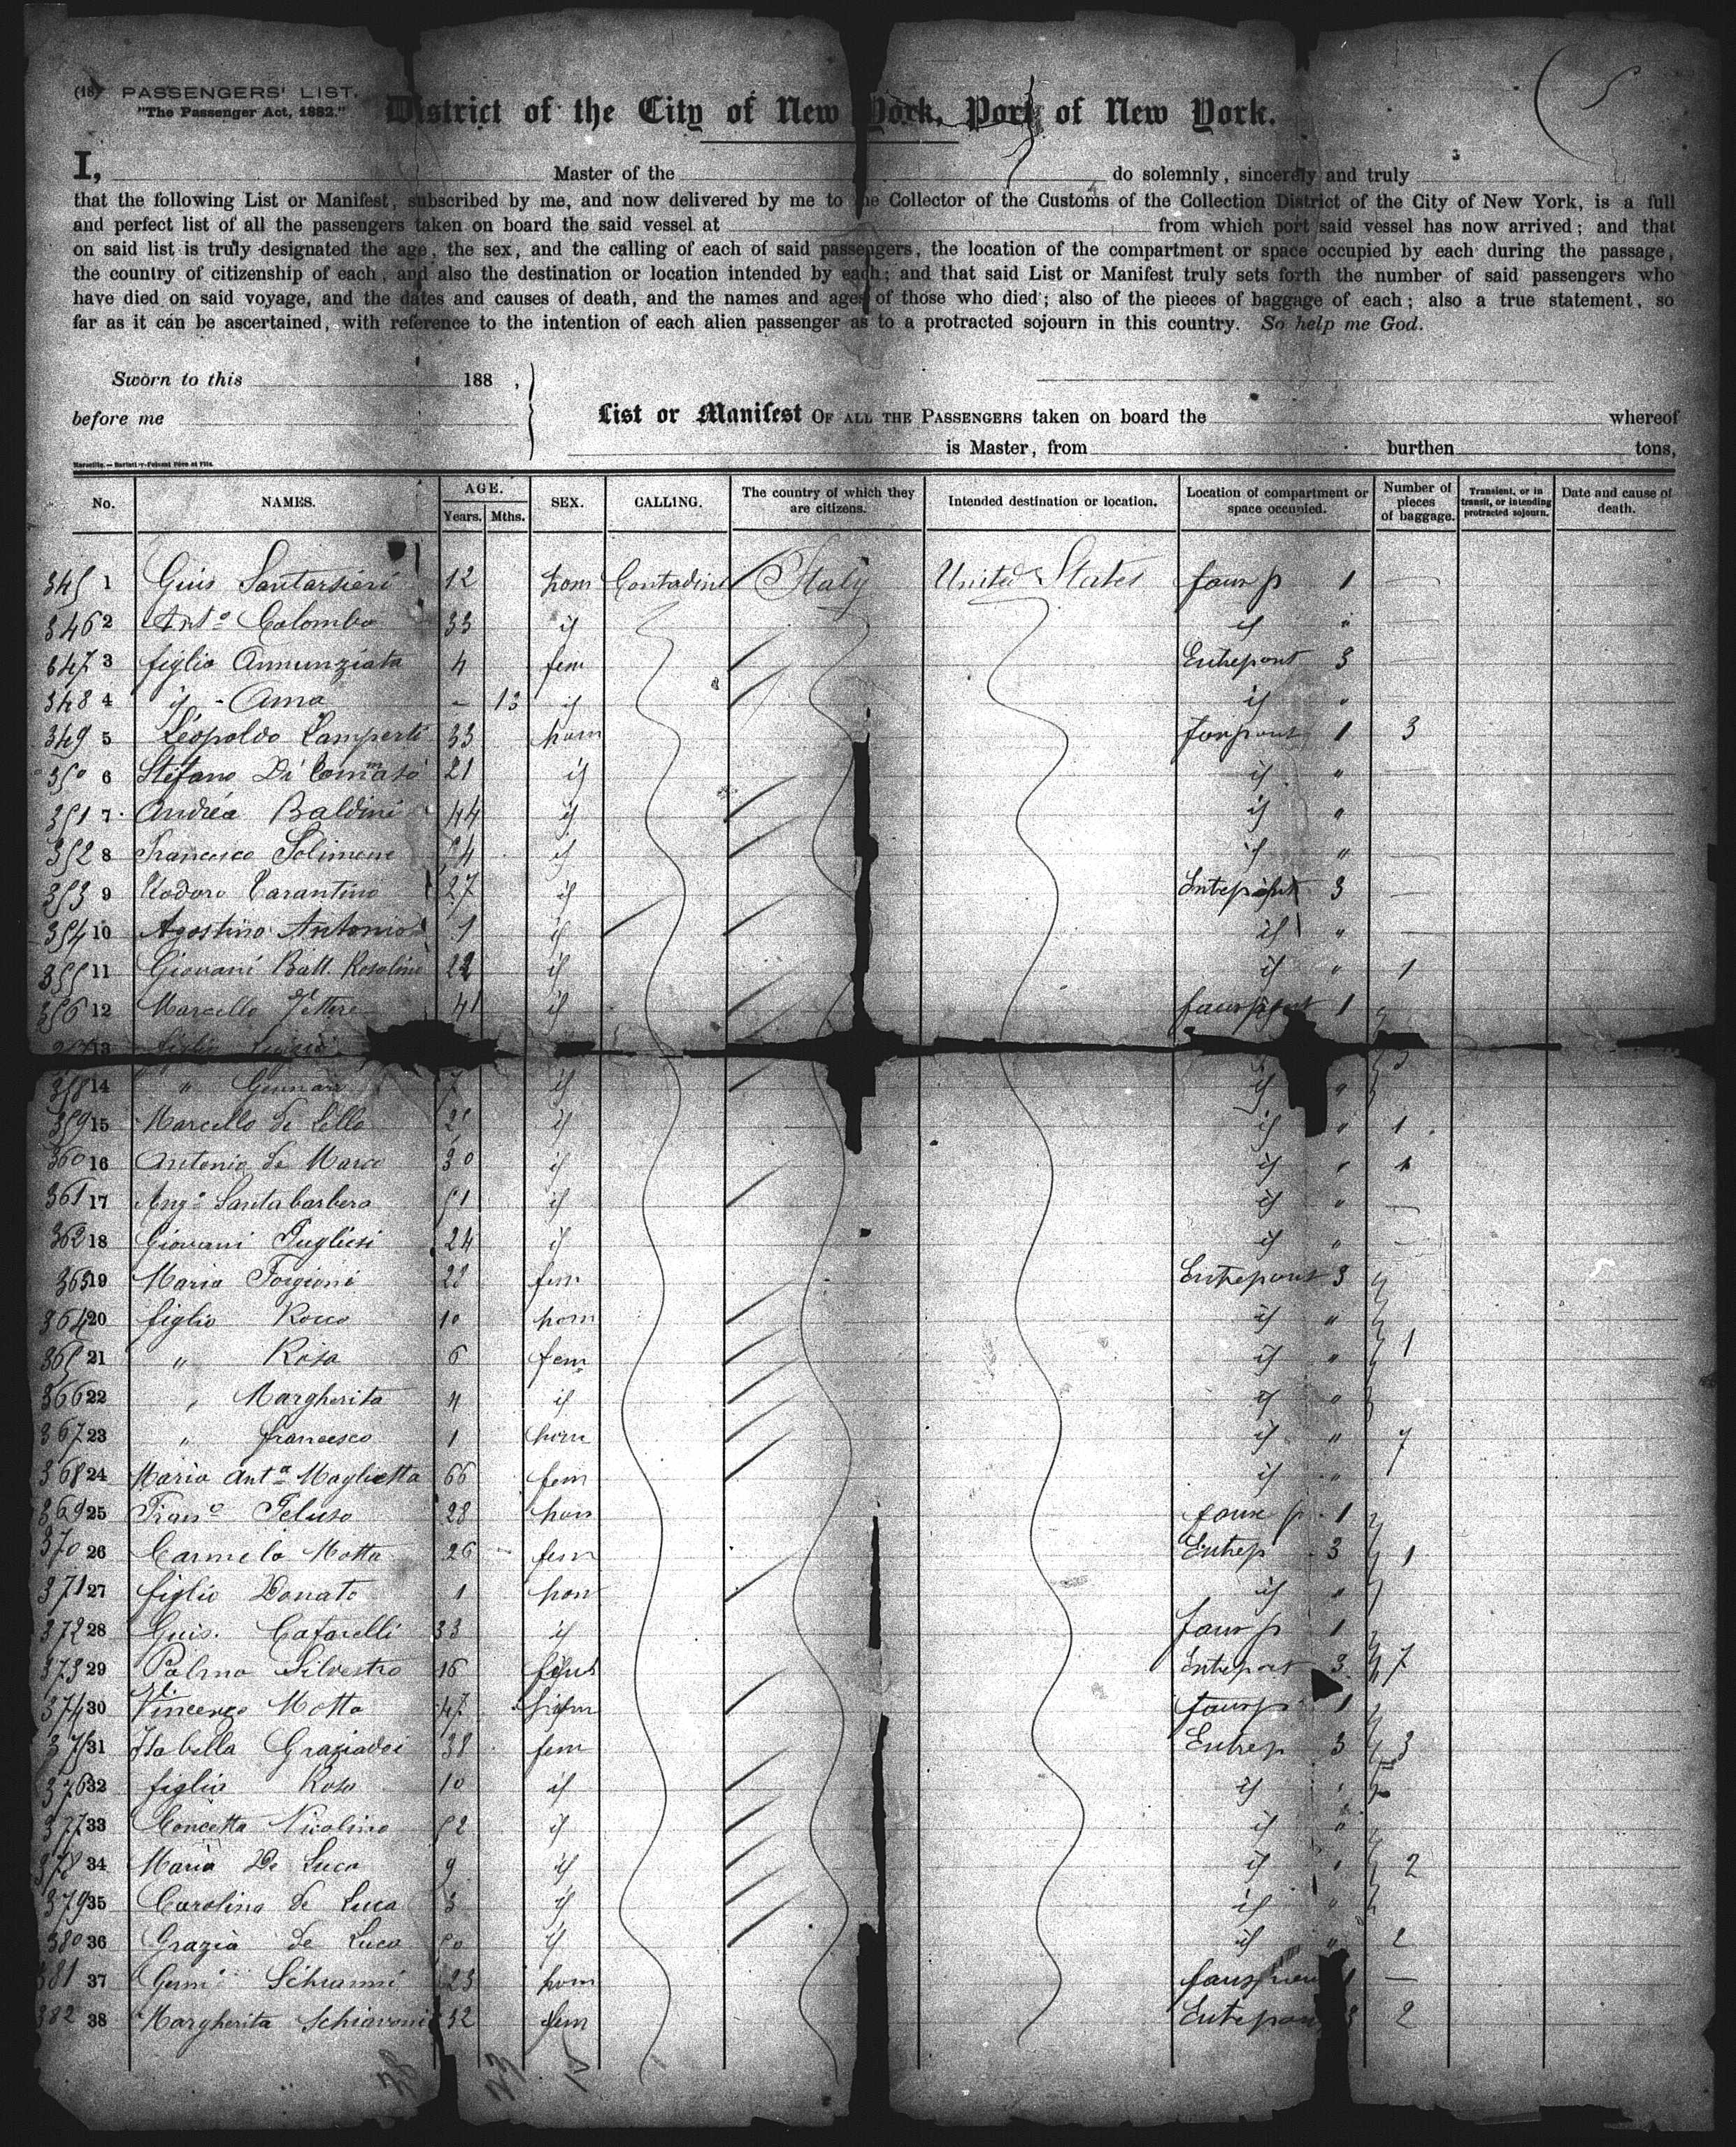 (18) PASSENGERS' LIST.
"The Passenger Act, 1882."
District of the City of New York, Port of New York.
I, Master of the do solemnly, sincerely and truly
that the following List or Manifest, subscribed by me, and now delivered by me to the Collector of the Customs of the Collection District of the City of New York, is a full
and perfect list of all the passengers taken on board the said vessel at from which port said vessel has now arrived; and that
on said list is truly designated the age, the sex, and the calling of each of said passengers, the location of the compartment or space occupied by each during the passage,
the country of citizenship of each, and also the destination or location intended by each; and that said List or Manifest truly sets forth the number of said passengers who
have died on said voyage, and the dates and causes of death, and the names and ages of those who died; also of the pieces of baggage of each; also a true statement, so
far as it can be ascertained, with reference to the intention of each alien passenger as to a protracted sojourn in this country. So help me God.
Sworn to this 188 ,
before me
List or Manifest OF ALL THE PASSENGERS taken on board the whereof
is Master, from burthen tons,
No. NAMES. AGE. Years. Mths. SEX. CALLING. The country of which they are citizens. Intended destination or location. Location of compartment or space occupied. Number of pieces of baggage. Transient, or in transit, or intending protracted sojourn. Date and cause of death.
345 1 Gius Santarsieri 12 hom Contadini Italy United States faux p 1 —
346 2 Anto Colombo 33 if if " —
347 3 figlia Annunziata 4 fem Entrepont 3 —
348 4 if - Anna - 13 if if " —
349 5 Leopoldo Lamperti 33 hom 1 3
350 6 Stefano Di Tommaso 21 if if " —
351 7 Andréa Baldini 44 if if " —
352 8 Francesco Solimene 54 if if " —
353 9 Tarantino 27 if Entrepont 3 —
354 10 Agostino Antonio if if " —
355 11 Giovani Batt. Rosolino 22 if if " 1
356 12 Marcello 41 if fauxpont 1
13 figlio
358 14 " Gennaro 7 if if "
359 15 Marcello de Lillo if if " 1
360 16 Antonio de Marco 30 if if " 1
361 17 Ango Santabarbera 51 if if " —
362 18 Giovani Pugliesi 24 if if " —
363 19 Maria Forgioni 28 fem Entrepont 3
364 20 figlio Rocco 10 hom if "
365 21 " Rosa 6 fem if " 1
366 22 " Margherita 4 if if "
367 23 " francesco 1 hom if "
368 24 Maria Anta Maglietta 66 fem if "
369 25 Frano Peluso 28 hom faux p 1
370 26 Carmela Motta 26 fem Entrep 3 1
371 27 figlio Donato 1 hom if "
372 28 Guis. Cafarelli 33 if faux p 1
373 29 Palma Silvestro 16 Entrepont 3
374 30 Vincenzo Motta 47 hom faux p 1
375 31 Isabella Graziadei 38 fem Entrep 3 3
376 32 figlia Rosa 10 if if "
377 33 Concetta Nicolino 52 if if "
378 34 Maria De Luca 9 if if " 2
379 35 Carolina de Luca 3 if if "
380 36 Grazia de Luca 50 if if " 2
381 37 23 hom 1 —
382 38 Margherita Schiavoni 32 fem Entrepont 3 2